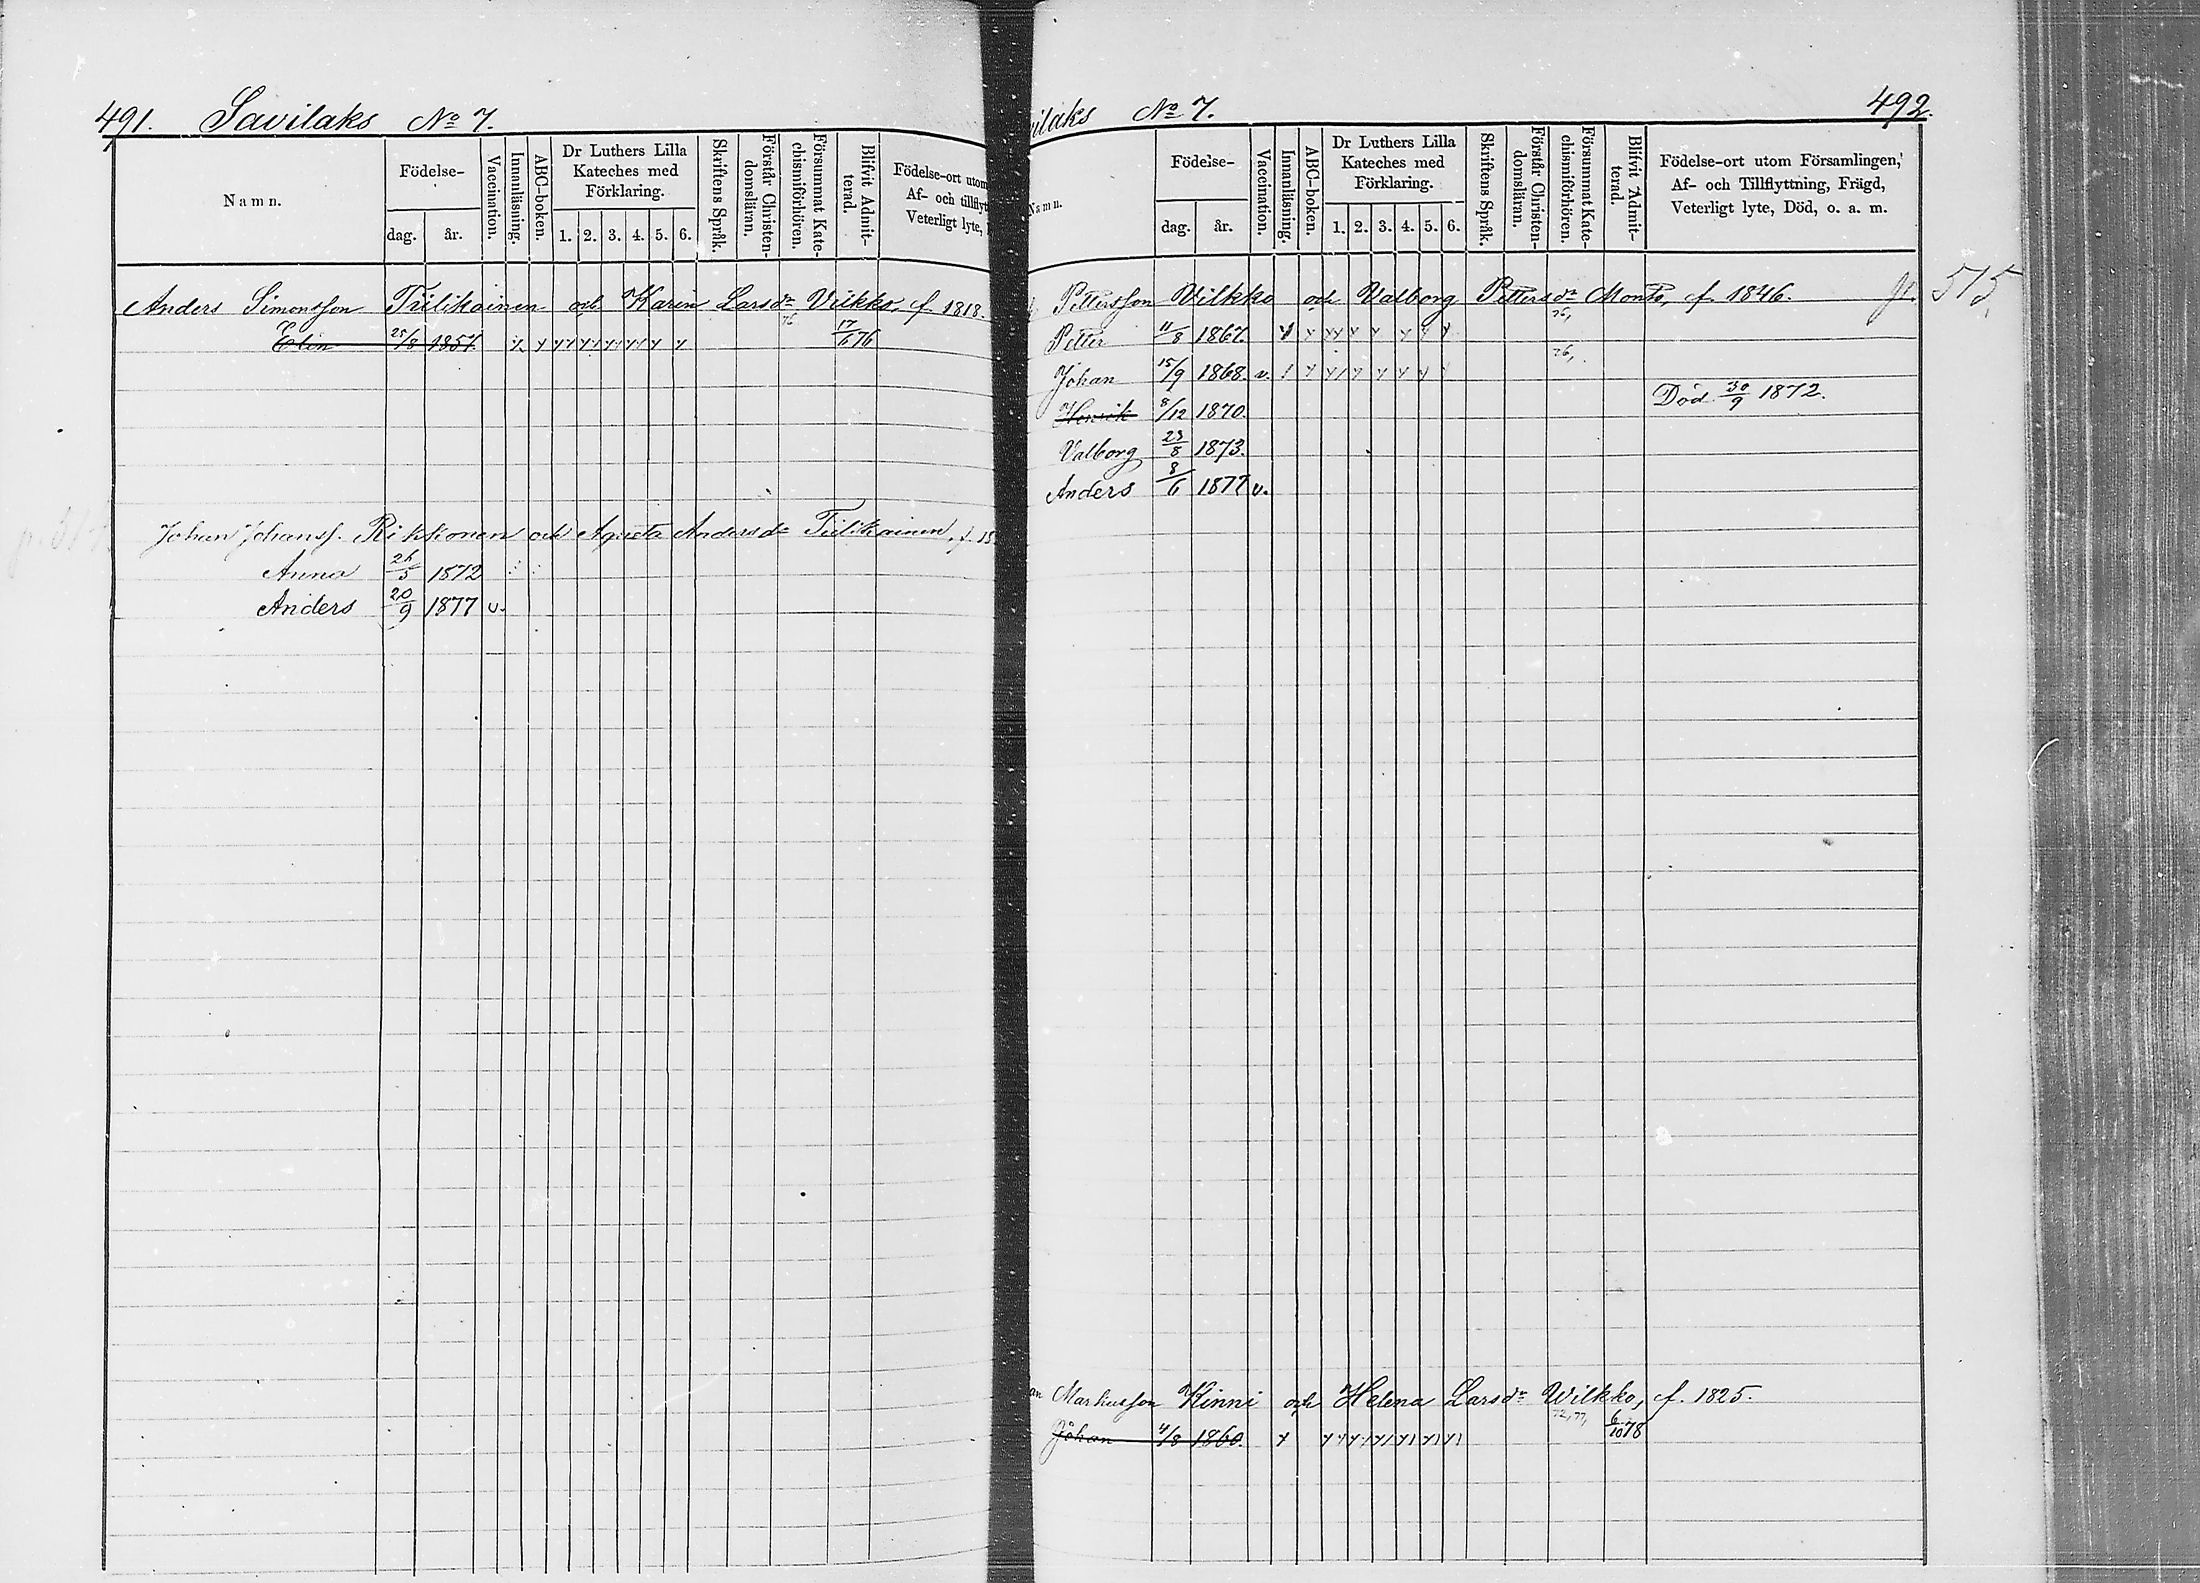 491. Savilaks No 7.
Namn.
Födelse-
dag. år.
Vaccination.
Innanläsning.
ABC-boken.
Dr Luthers Lilla
Kateches med
Förklaring.
1. 2. 3. 4. 5. 6.
Skriftens Språk.
Förstår Christen-
domsläran.
Försummat Kate-
chismiförhören.
Blifvit Admit-
terad.
Födelse-ort utom
Af- och tillflyt
Veterligt lyte,
Anders Simonsson Tiilikainen och Karin Larsdr Vilkko, f. 1818.
76
Elin 25/8 1857. 17/6 76
Johan Johanss. Rikkonen och Agneta Andersdr Tiilikainen, f. 18
Anna 26/5 1872
Anders 20/9 1877 v.
ilaks No 7. 492.
Namn.
Födelse-
dag. år.
Vaccination.
Innanläsning.
ABC-boken.
Dr Luthers Lilla
Kateches med
Förklaring.
1. 2. 3. 4. 5. 6.
Skriftens Språk.
Förstår Christen-
domsläran.
Försummat Kate-
chismiförhören.
Blifvit Admit-
terad.
Födelse-ort utom Församlingen,
Af- och Tillflyttning, Frägd,
Veterligt lyte, Död, o. a. m.
Pettersson Vilkko och Valborg Pettersdr Monto, f. 1846. 515
76,
Petter 11/8 1867.
76,
Johan 15/9 1868. v.
Henrik 8/12 1870. Död 30/9 1872.
Valborg 23/8 1873.
Anders 8/6 1877 v.
an Markusson Kinni och Helena Larsdr Wilkko, f. 1825.
72, 77,
Johan 4/8 1860. 6/10 78